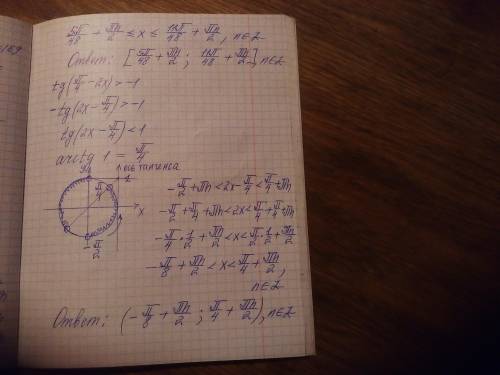 5π/48 + πn/2 ≤ x ≤ 11π/48 + πn/2, n∈Z
Ответ: [5π/48 + πn/2; 11π/48 + πn/2], n∈Z
tg(π/4 - 2x) > -1
-tg(2x - π/4) > -1
tg(2x - π/4) < 1
arctg 1 = π/4
y
ось тангенса
1
π/4
x
-π/2
-π/2 + πn < 2x - π/4 < π/4 + πn
-π/2 + π/4 + πn < 2x < π/4 + π/4 + πn
-π/4 · 1/2 + πn/2 < x < π/2 · 1/2 + πn/2
-π/8 + πn/2 < x < π/4 + πn/2,
n∈Z
Ответ: (-π/8 + πn/2; π/4 + πn/2), n∈Z